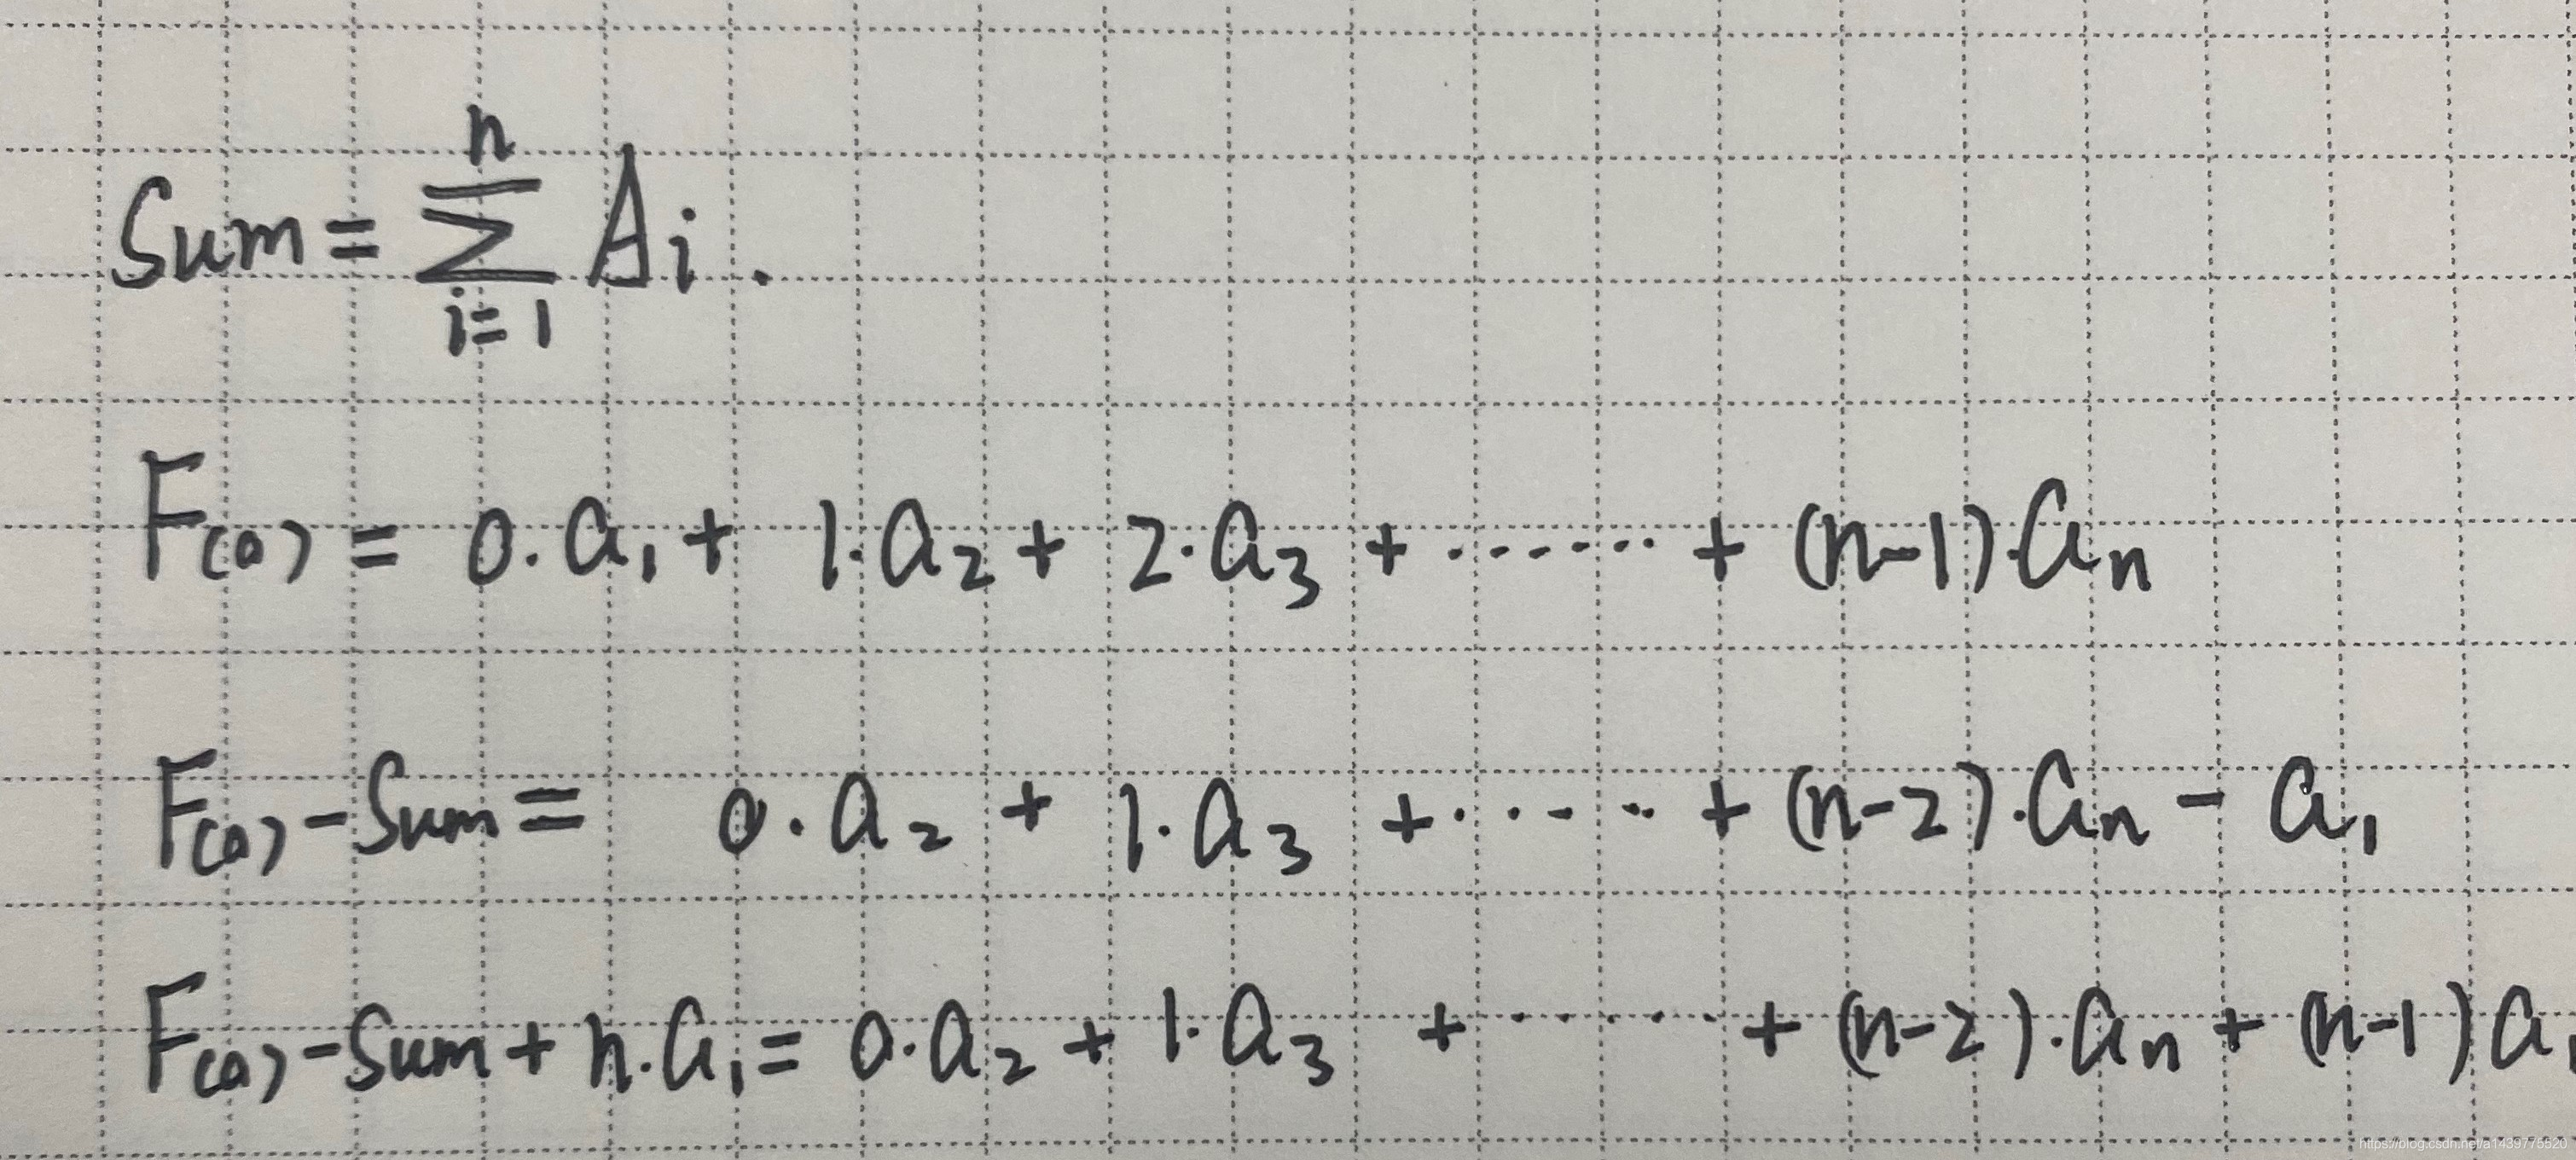 n
Sum = Σ Ai .
i=1
F(0) = 0·a₁ + 1·a₂ + 2·a₃ + ······ + (n-1)·an
F(0) - Sum = 0·a₂ + 1·a₃ + ····· + (n-2)·an - a₁
F(0) - Sum + n·a₁ = 0·a₂ + 1·a₃ + ······ + (n-2)·an + (n-1)a₁
https://blog.csdn.net/a1439775520